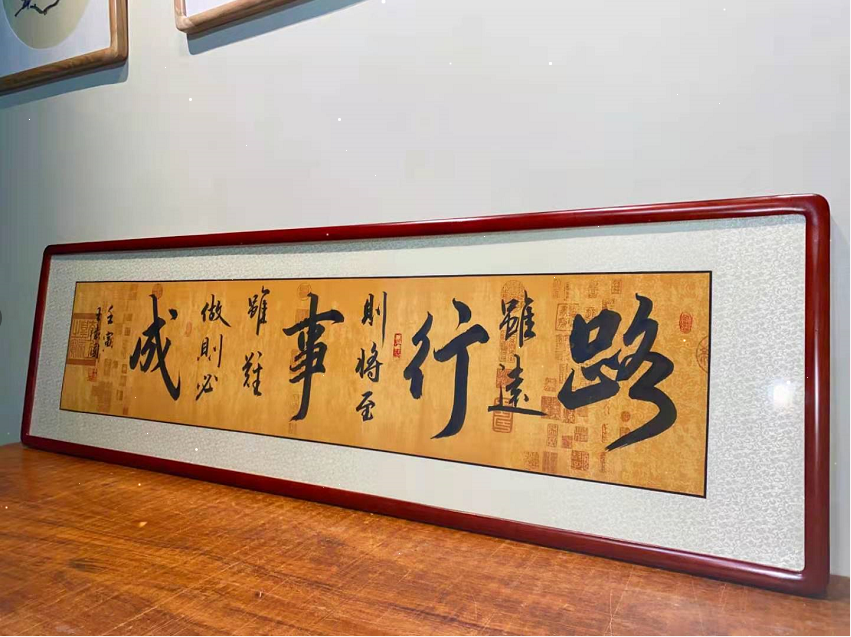 路
雖遠
行
則將至
事
雖難
做則必
成